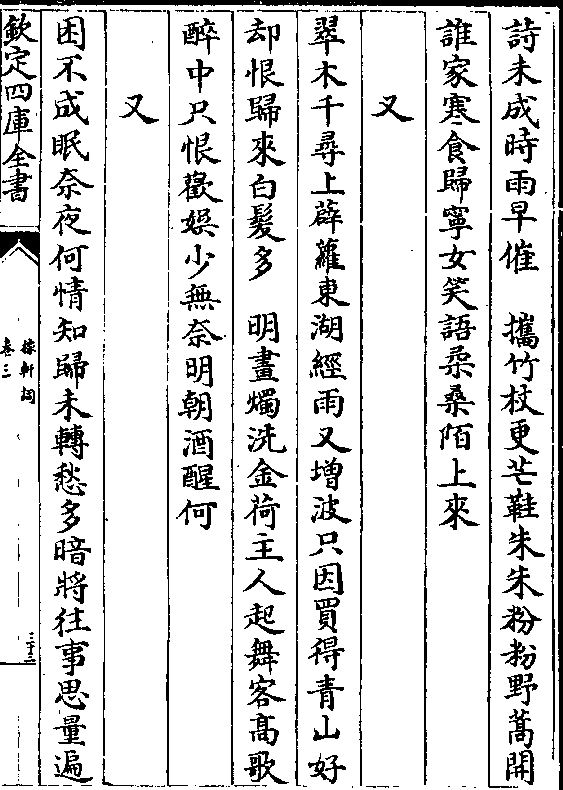 詩未成時雨早催　攜竹杖更芒鞋朱朱粉粉野蒿開
誰家寒食歸寧女笑語柔桑陌上來
又
翠木千尋上薜蘿東湖經雨又增波只因買得青山好
却恨歸來白髮多　明畫燭洗金荷主人起舞客高歌
醉中只恨歡娱少無奈明朝酒醒何
又
困不成眠奈夜何情知歸未轉愁多暗將往事思量遍
欽定四庫全書
稼軒詞
卷三
三十三